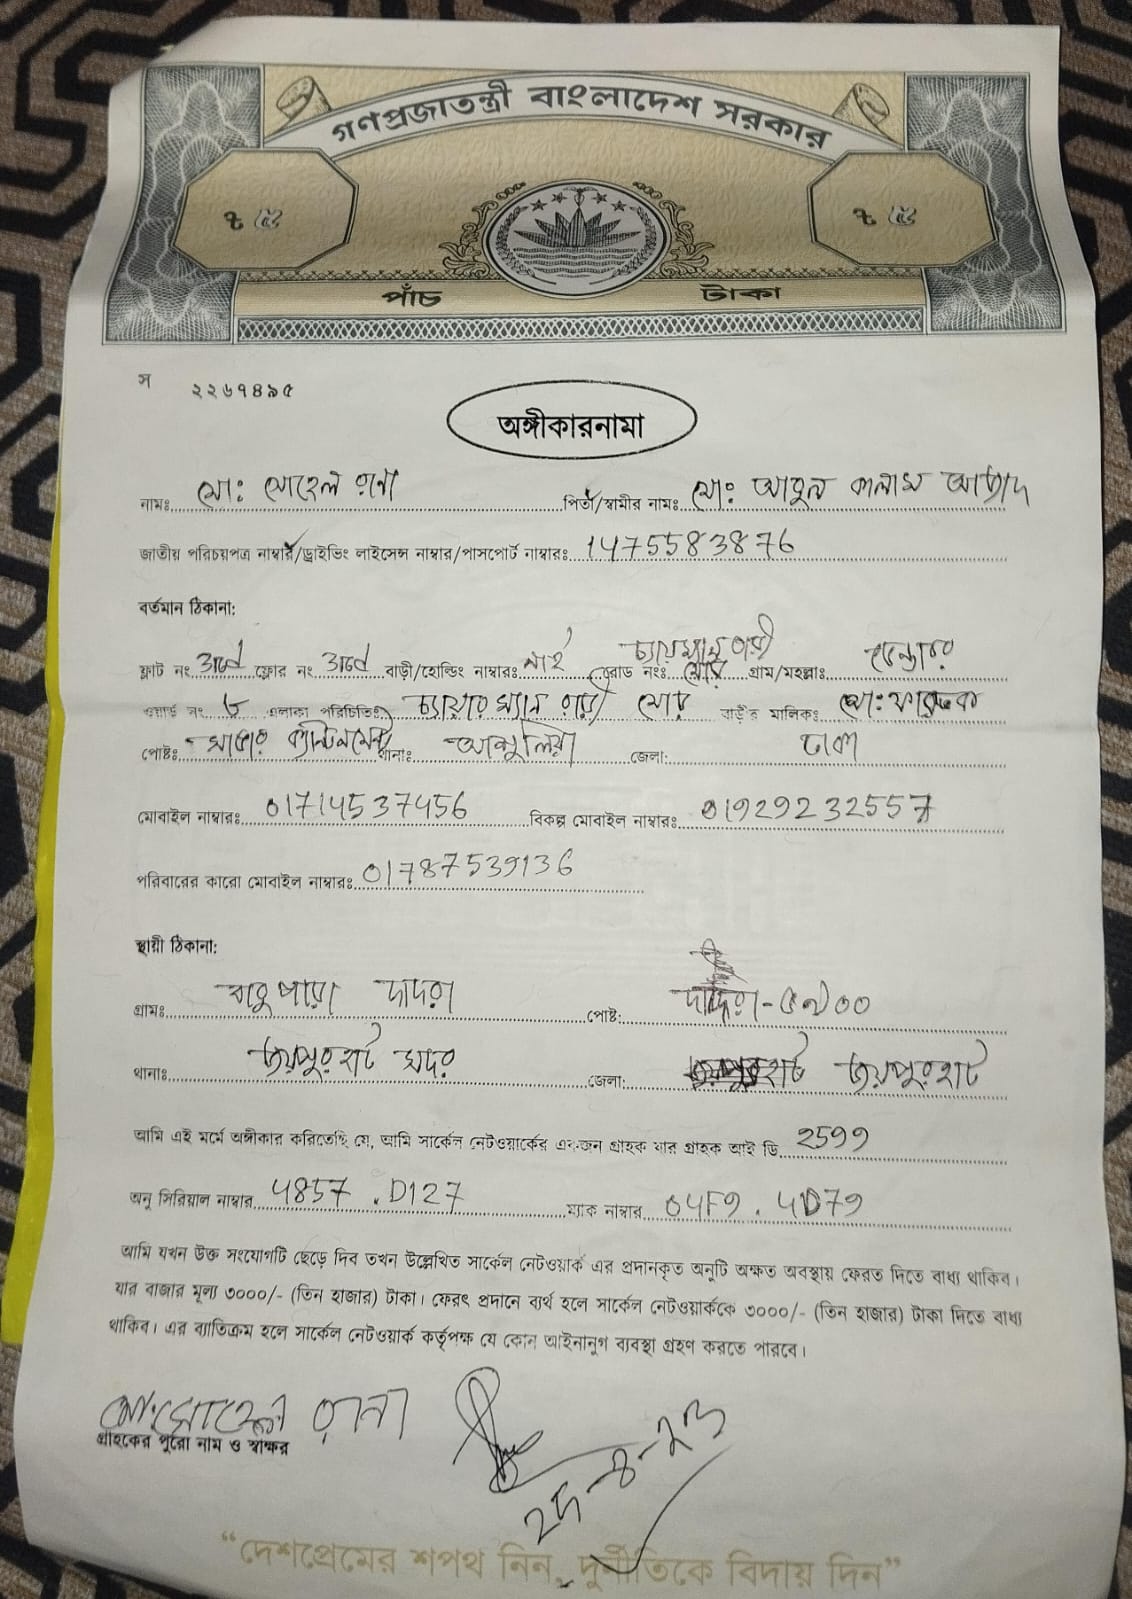 গণপ্রজাতন্ত্রী বাংলাদেশ সরকার
৳ ৫ ৳ ৫
পাঁচ টাকা
স ২২৬৭৪৯৫
অঙ্গীকারনামা
নামঃ মোঃ সোহেল রানা পিতা/স্বামীর নামঃ মোঃ আবুল কালাম আজাদ
জাতীয় পরিচয়পত্র নাম্বার/ড্রাইভিং লাইসেন্স নাম্বার/পাসপোর্ট নাম্বারঃ 1475583876
বর্তমান ঠিকানা:
ফ্লাট নং ফ্লোর নং বাড়ী/হোল্ডিং নাম্বারঃ নাই রোড নংঃ মোর গ্রাম/মহল্লাঃ
ওয়ার্ড নং ৬ এলাকা পরিচিতিঃ চেয়ারম্যান বাড়ী মোর বাড়ীর মালিকঃ মোঃ ফারুক
পোষ্টঃ সাভার ক্যান্টনমেন্ট থানাঃ আশুলিয়া জেলা: ঢাকা
মোবাইল নাম্বারঃ 01714537456 বিকল্প মোবাইল নাম্বারঃ 01929232557
পরিবারের কারো মোবাইল নাম্বারঃ 01787539136
স্থায়ী ঠিকানা:
গ্রামঃ দাদরা পোষ্ট: দাদরা-৫৯০০
থানাঃ জয়পুরহাট সদর জেলা: জয়পুরহাট
আমি এই মর্মে অঙ্গীকার করিতেছি যে, আমি সার্কেল নেটওয়ার্কের একজন গ্রাহক যার গ্রাহক আই ডি 2599
অনু সিরিয়াল নাম্বার 4857.D127 ম্যাক নাম্বার 04F9.4D79
আমি যখন উক্ত সংযোগটি ছেড়ে দিব তখন উল্লেখিত সার্কেল নেটওয়ার্ক এর প্রদানকৃত অনুটি অক্ষত অবস্থায় ফেরত দিতে বাধ্য থাকিব।
যার বাজার মূল্য ৩০০০/- (তিন হাজার) টাকা। ফেরৎ প্রদানে ব্যর্থ হলে সার্কেল নেটওয়ার্ককে ৩০০০/- (তিন হাজার) টাকা দিতে বাধ্য
থাকিব। এর ব্যাতিক্রম হলে সার্কেল নেটওয়ার্ক কর্তৃপক্ষ যে কোন আইনানুগ ব্যবস্থা গ্রহণ করতে পারবে।
মোঃ সোহেল রানা
গ্রাহকের পুরো নাম ও স্বাক্ষর
“দেশপ্রেমের শপথ নিন, দুর্নীতিকে বিদায় দিন”